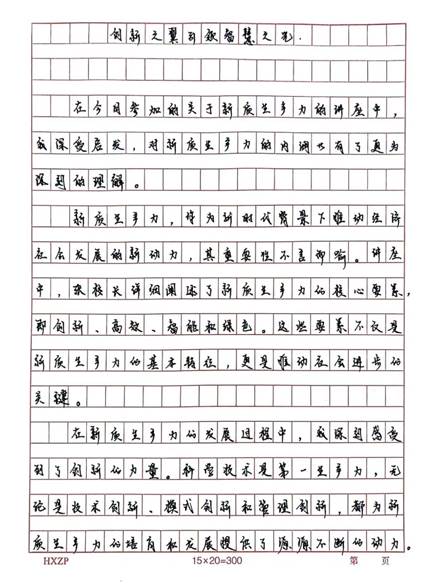 创新之翼引领智慧之光.
在今日参加的关于新质生产力的讲座中,
我深受启发,对新质生产力的内涵有了更为
深刻的理解。
新质生产力,作为新时代背景下推动经济
社会发展的新动力,其重要性不言而喻。讲座
中,张校长详细阐述了新质生产力的核心要素,
即创新、高效、智能和绿色。这些要素不仅是
新质生产力的基本特征,更是推动社会进步的
关键。
在新质生产力的发展过程中,我深刻感受
到了创新的力量。科学技术是第一生产力,无
论是技术创新、模式创新和管理创新,都为新
质生产力的培育和发展提供了源源不断的动力。
HXZP 15×20=300 第 页